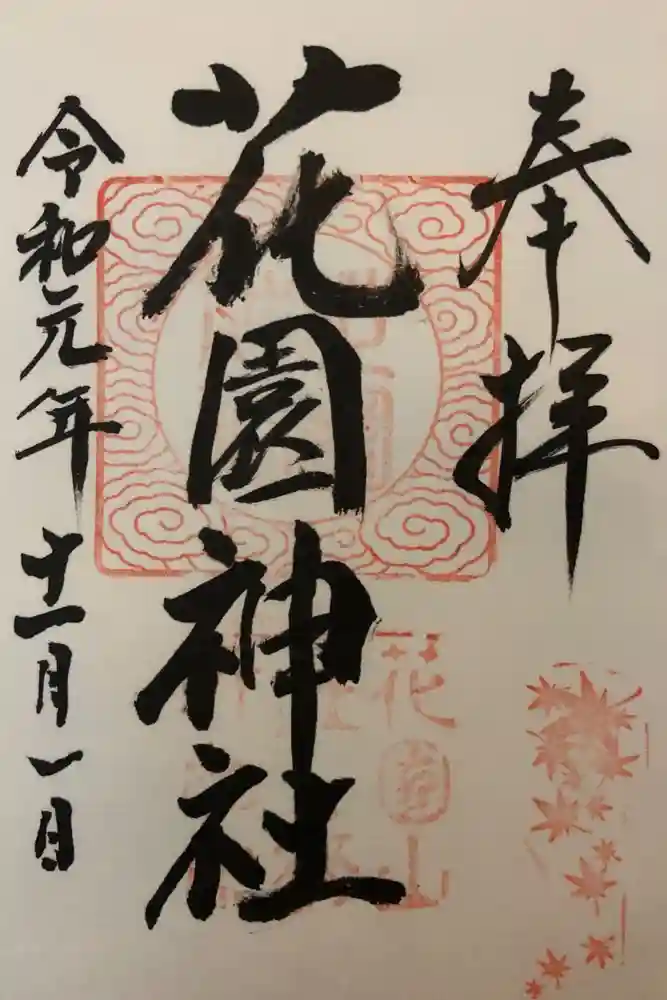 奉拝
花園神社
令和元年十一月一日